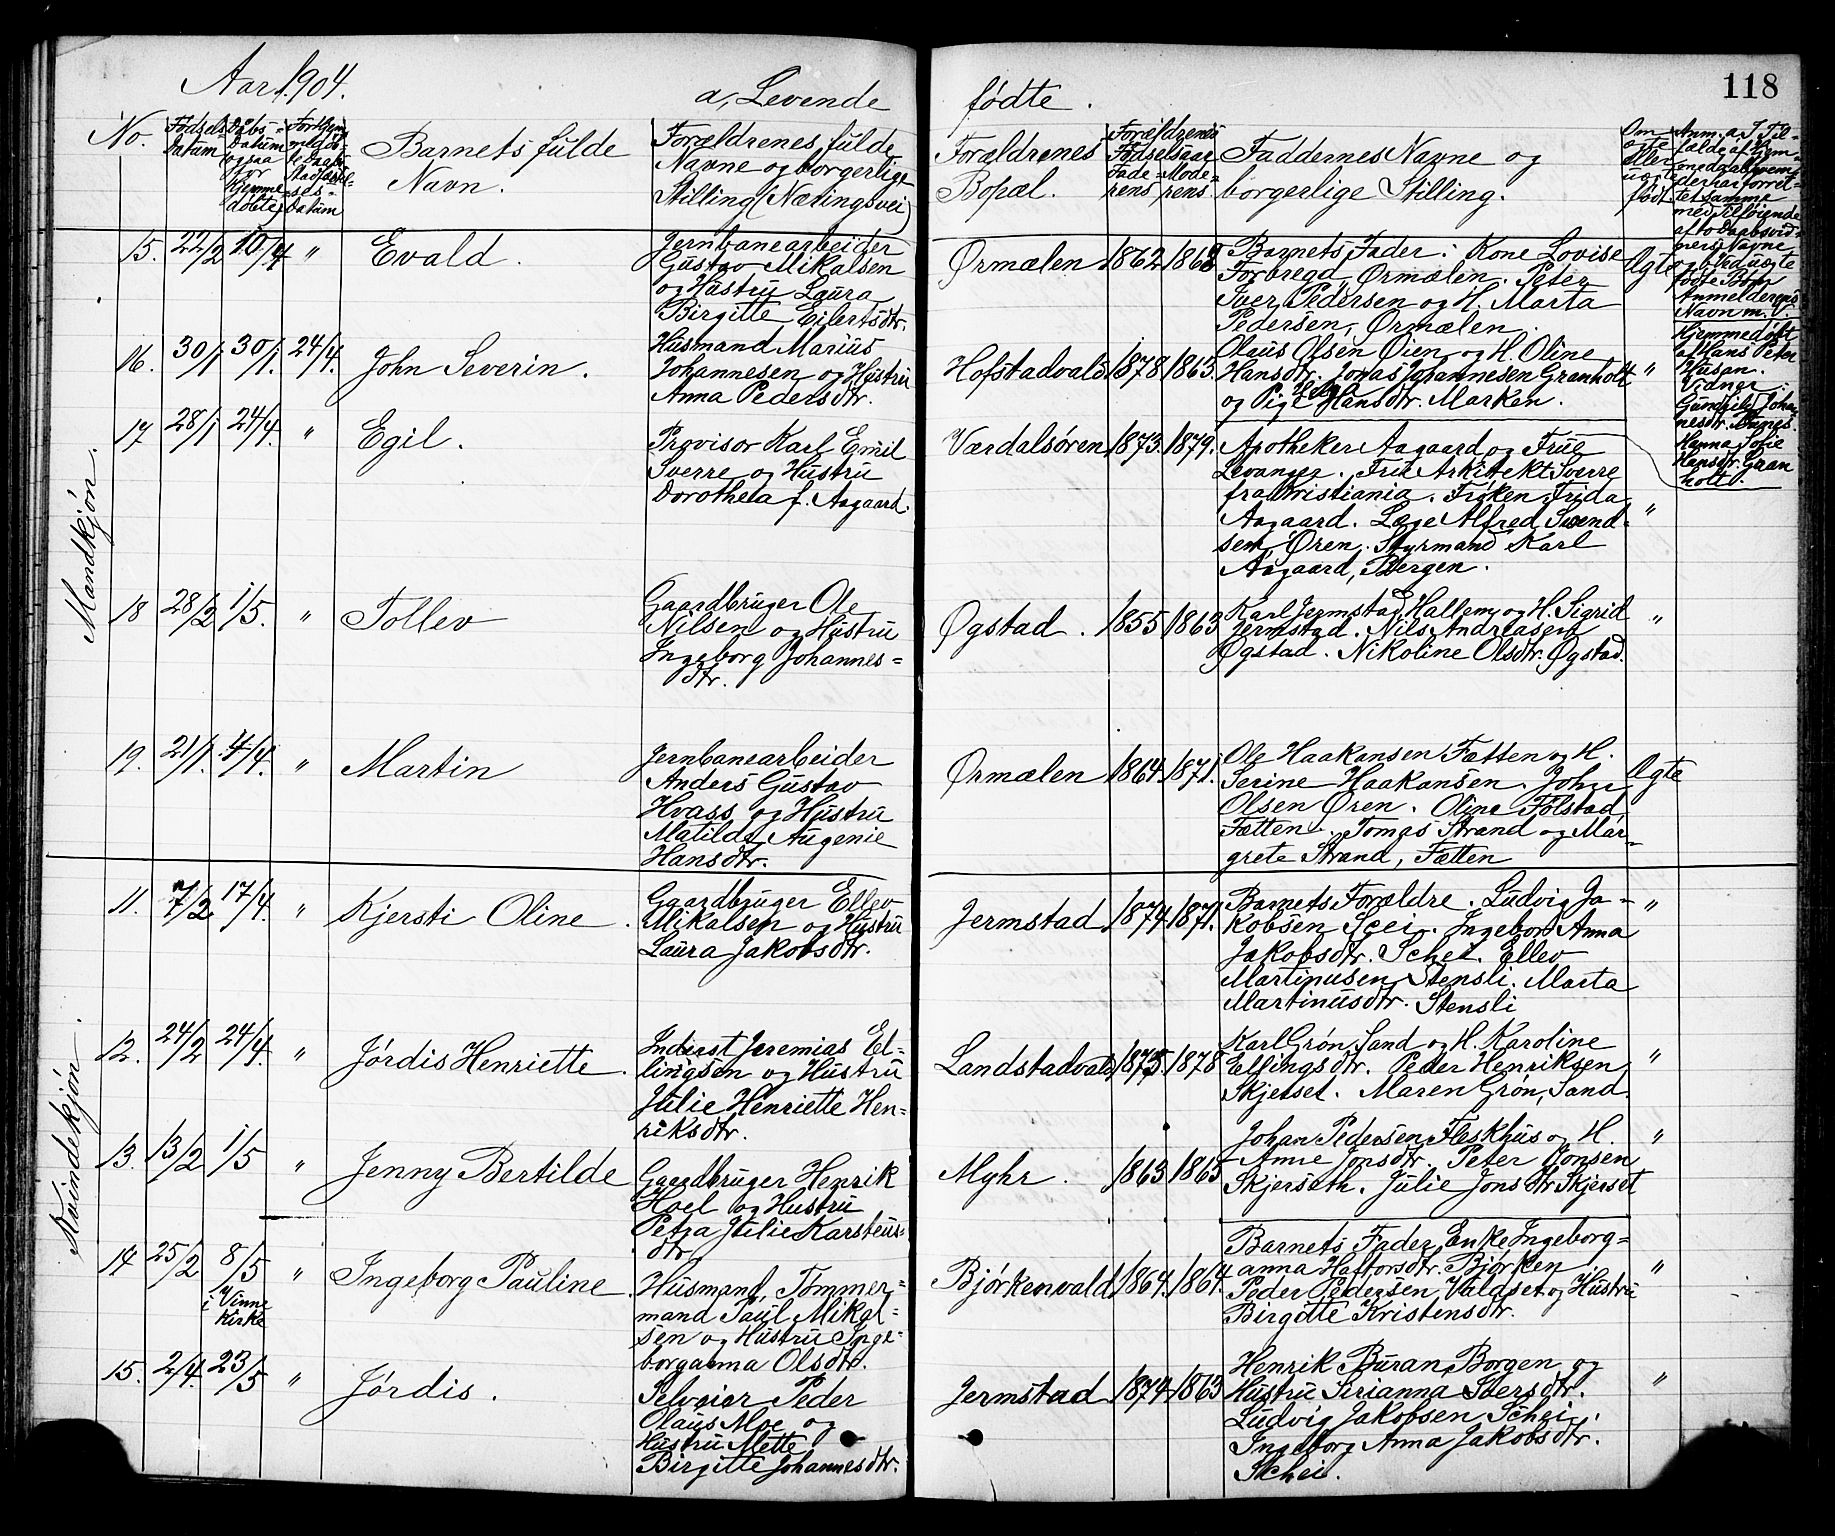 118
Aar 1904.
a, Levende fødte.
No.
Fødsels Datum
Daabs-Datum ogsaa for Hjemmedøbte
Barnets fulde Navn.
Forældrenes fulde
Navne og borgerlige
Stilling (Næringsvei)
Forældrenes
Bopæl.
Forældrenes
Fødselsaar
Fade- Mode-
rens rens
Faddernes Navne og
borgerlige Stilling.
Om
ægte
eller
uægte
født.
Mandkjøn.
15. 22/2 10/4 " Evald.
Jernbanearbeider
Gustav Mikalsen
og Hustru Laura
Birgitte Eilertsdtr.
Ørmælen 1862 1862
Barnets Fader: Kone Lovise
Forbregd, Ørmælen. Peter
Iver Pedersen og H. Marta
Pedersen, Ørmælen.
Ægte
16. 30/1 30/1. 24/4. John Severin.
Husmand Marius
Johannesen og Hustru
Anna Pedersdtr.
Hofstadvald 1878 1865.
Olaus Olsen Øien og H. Oline
Hansdtr. Jonas Johannesen Granholt
og Pige Hansdtr. Marken.
"
Hjemmedøbt
af Hans Peter
Husan.
Vidner:
Hanna Sofie
Hansdr. Gran
holt.
17 28/1 24/4. " Egil.
Provisor Karl Emil
Sverre og Hustru
Dorothea f. Aagaard.
Værdalsøren 1873. 1879.
Apotheker Aagaard og Frue
Levanger. Frue Arkitekt Sverre
fra Kristiania. Frøken Frida
Aagaard. Læge Alfred Svend-
sen, Øren. Styrmand Karl
Aagaard, Bergen.
"
18 28/2 1/5. " Tollev
Gaardbruger Ole
Nilsen og Hustru
Ingeborg Johannes=
dtr.
Øgstad. 1855 1863
Karl Jermstad, Hallem og H. Sigrid
Jermstad. Nils Andreasen
Øgstad. Nikoline Olsdtr. Øgstad.
"
19. 21/1. 4/4. " Martin
Jernbanearbeider
Anders Gustav
Hvass og Hustru
Matilde Augenie
Hansdtr.
Ørmælen 1864. 1871.
Ole Haakansen Fætten og H.
Serine Haakansen. Johan
Olsen Øren. Oline Folstad,
Fætten. Tomas Strand og Mar-
grete Strand, Fætten
Ægte
Kvindekjøn.
11. 7/2 17/4. " Kjersti Oline.
Gaardbruger Ellev
Mikalsen og Hustru
Laura Jakobsdtr.
Jermstad 1874 1871.
Barnets Forældre. Ludvig Ja-
kobsen Scei. Ingebor Anna
Jakobsdtr. Schei. Ellev
Martinusen Stensli. Marta
Martinusdtr. Stensli
"
12. 24/2 24/4. " Jórdis Henriette.
Inderst Jeremias El=
lingsen og Hustru
Julie Henriette Hen=
riksdtr.
Landstadvald 1875. 1878
Karl Grøn, Sand og H. Karoline
Ellingsdtr. Peder Henriksen
Skjerset. Maren Grøn, Sand.
"
13. 13/2 1/5 " Jenny Bertilde
Gaardbruger Henrik
Hoel og Hustru
Petra Julie Karsteus-
dtr
Myhr. 1863 1865
Johan Pedersen Fleskhus og H.
Anne Jonsdtr. Peter Jonsen
Skjerseth. Julie Jonsdtr Skjerset
"
14 25/2 8/5 i Vinne Kirke " Ingeborg Pauline.
Husmand, Tømmer=
mand Paul Mikal-
sen og Hustru Inge-
borganna Olsdtr.
Bjórkenvald 1864. 1864.
Barnets Fader. Enke Ingeborg=
anna Haftorsdtr. Bjórken.
Peder Pedersen, Valdset og Hustru
Birgitte Kristensdtr.
"
15. 2/4. 23/5 " Jórdis.
Selveier Peder
Olaus Moe og
Hustru Mette
Birgitte Johannesdtr.
Jermstad 1874 1863
Henrik Buran, Borgen og
Hustru Serianna Iversdtr.
Ludvig Jakobsen Schei.
Ingeborg Anna Jakobsdtr.
Schei.
"